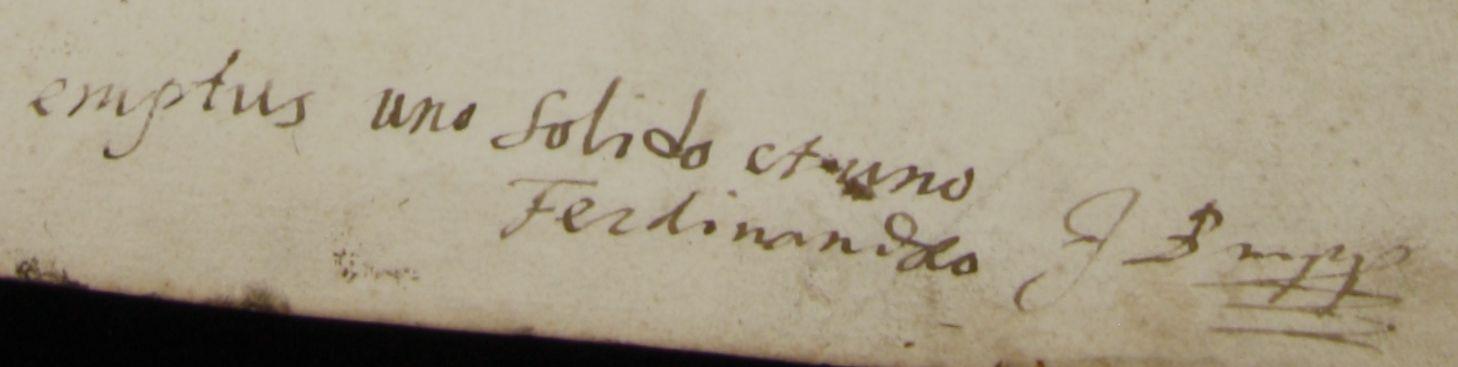 emptus uno solido et uno
Ferdinando J S mpp